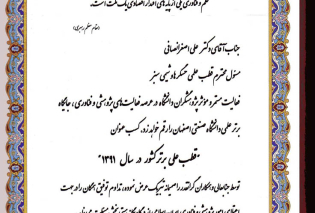 علم و فناوری یکی از پایه‌های اقتدار اقتصادی یک ملت است.
(مقام معظم رهبری)
جناب آقای دکتر علی اصغر انصافی
مسئول محترم قطب علمی حسگر و شیمی سبز
فعالیت مستمر و مؤثر پژوهشگران دانشگاه در عرصه فعالیت‌های پژوهشی و فناوری، جایگاه
برتر علمی دانشگاه صنعتی اصفهان را رقم خواهد زد. کسب عنوان
"قطب علمی برتر کشور در سال ۱۳۹۱"
توسط جنابعالی و همکاران گرانقدر را صمیمانه تبریک عرض نموده و تداوم توفیق همگان را در جهت